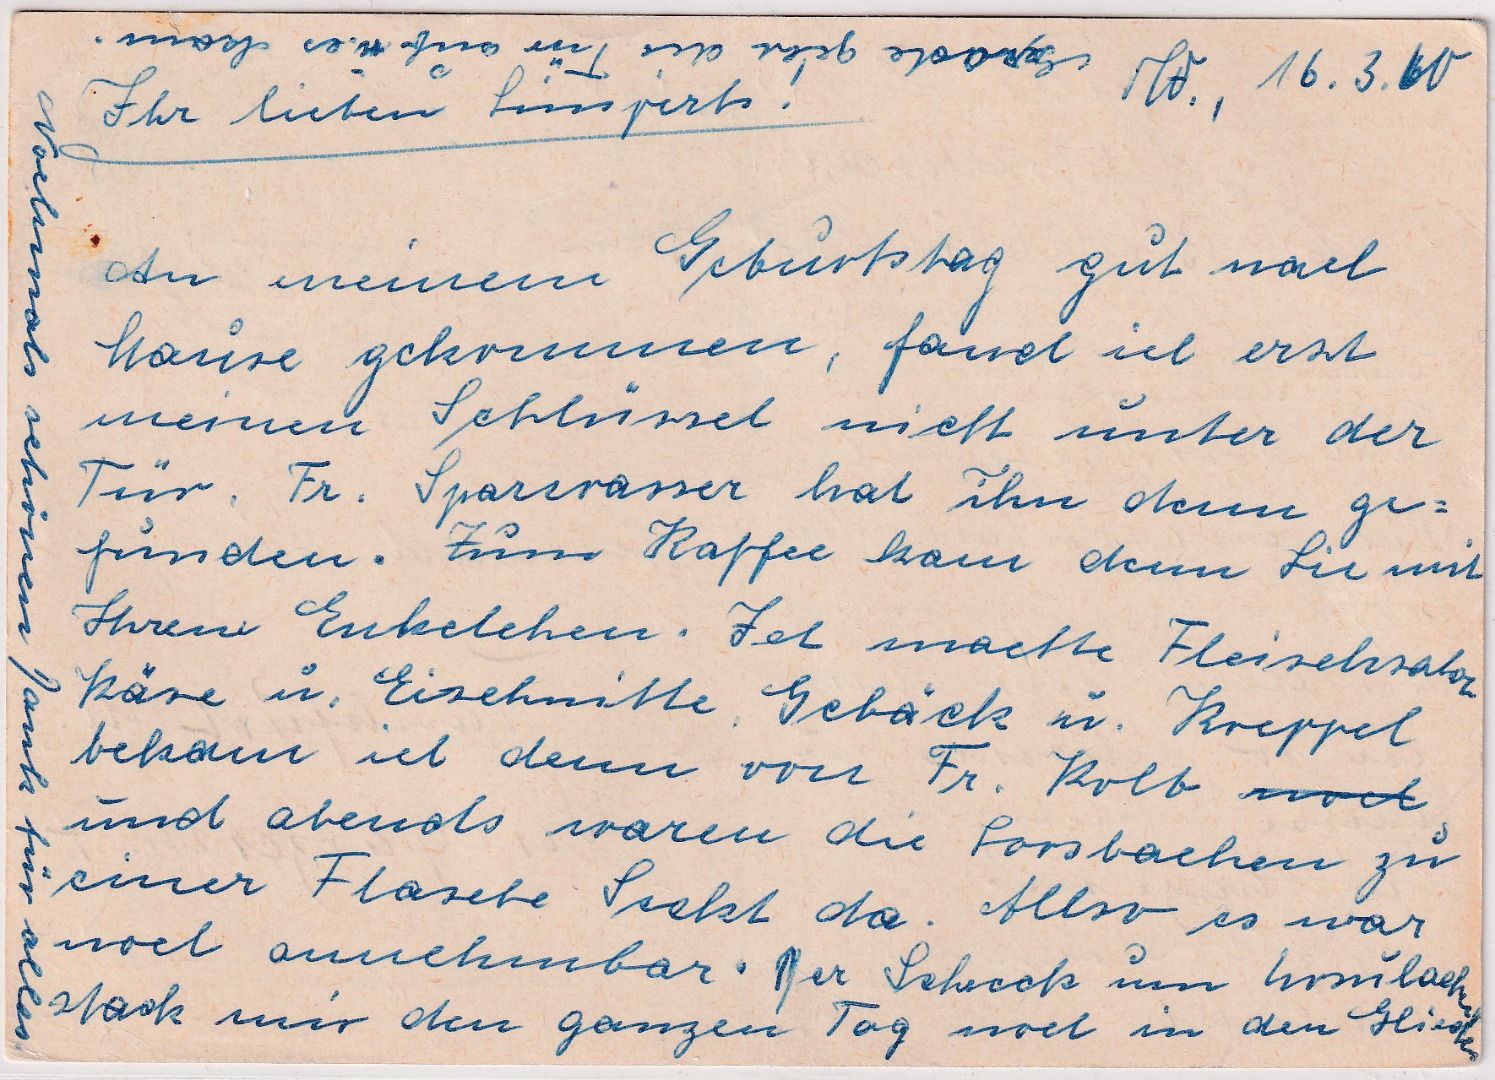 16.3.60
Ihr lieben
An meinem Geburtstag gut nach
hause gekommen, fand ich erst
meinen Schlüssel nicht unter der
Tür. Fr. Sparwasser hat ihn dann ge=
funden. Zum Kaffee kam dann Lii mit
Ihren Enkelchen. Ich machte Fleischsalat
Käse u. Eischnitte, Gebäck u. Kreppel
bekam ich dann von Fr. Kolb noch
und abends waren die Lorsbachen zu
einer Flasche Seckt da. Allso es war
noch annehmbar. Der Schreck um
stack mir den ganzen Tag noch in den Glieder
Nochmals schönen Dank für alles.
gerade gehe die Tür auf u. es kam.